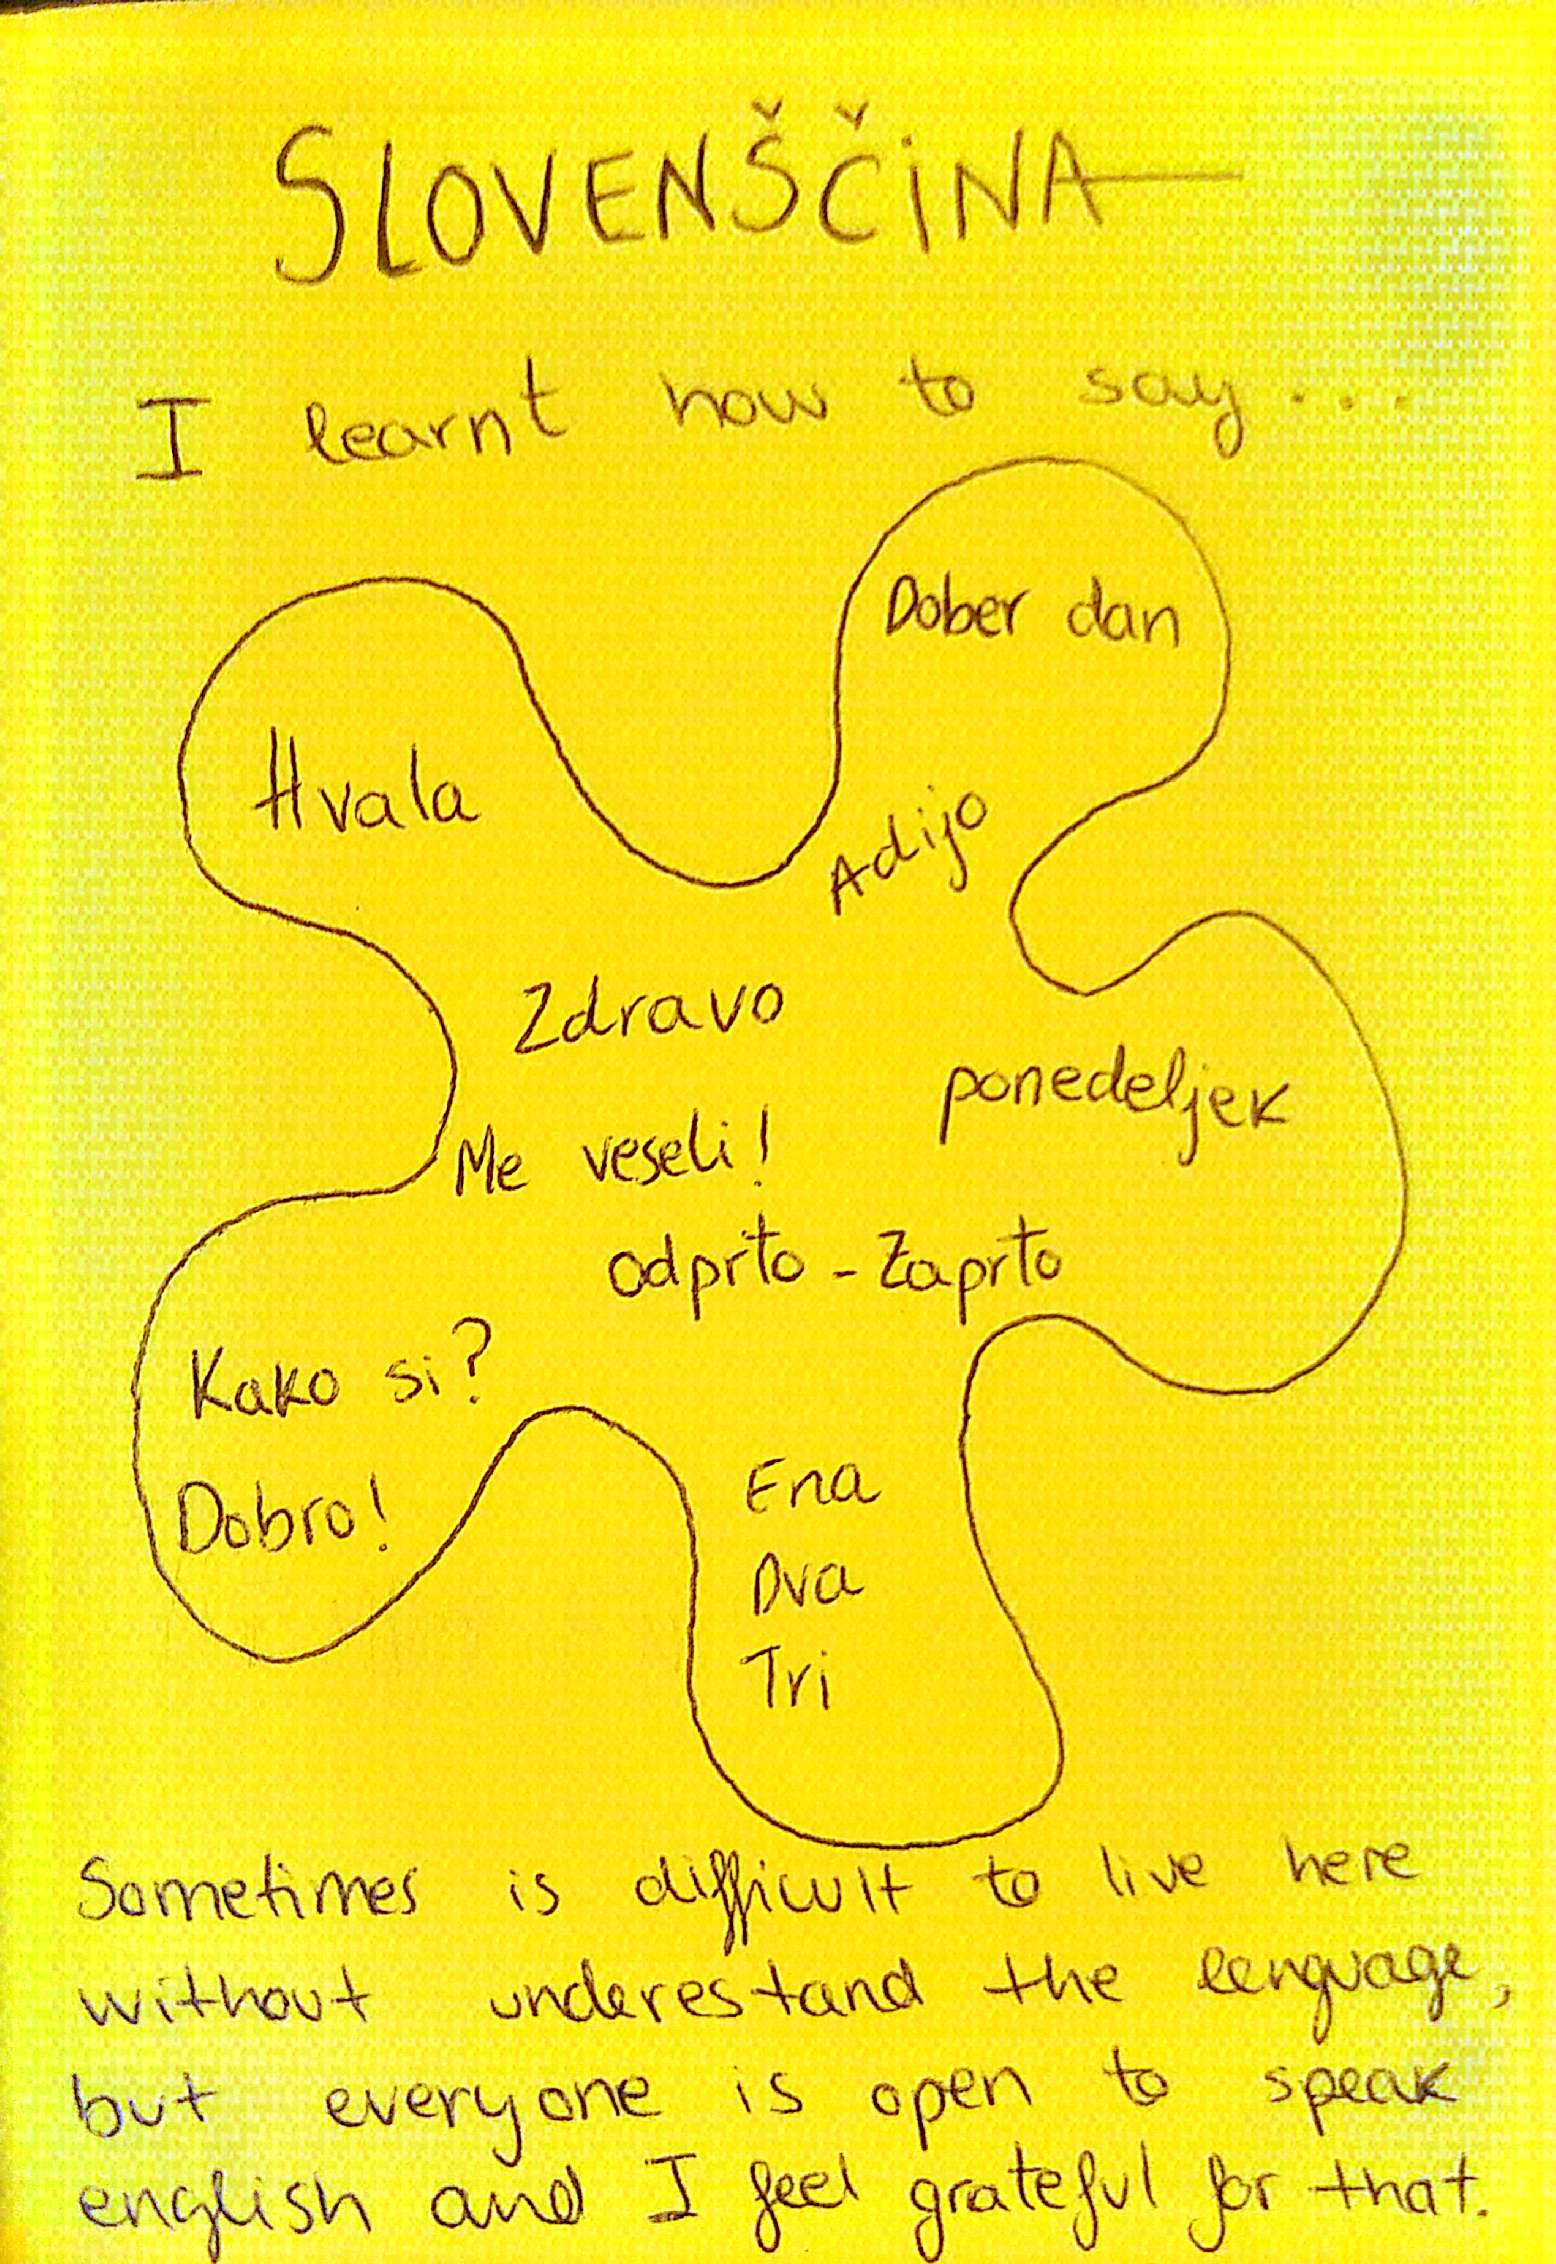 SLOVENŠČINA
I learnt how to say...
Dober dan
Hvala
Adijo
Zdravo
ponedeljek
Me veseli!
Odprto - Zaprto
Kako si?
Dobro!
Ena
Dva
Tri
Sometimes is difficult to live here
without underestand the lenguage,
but everyone is open to speak
english and I feel grateful for that.